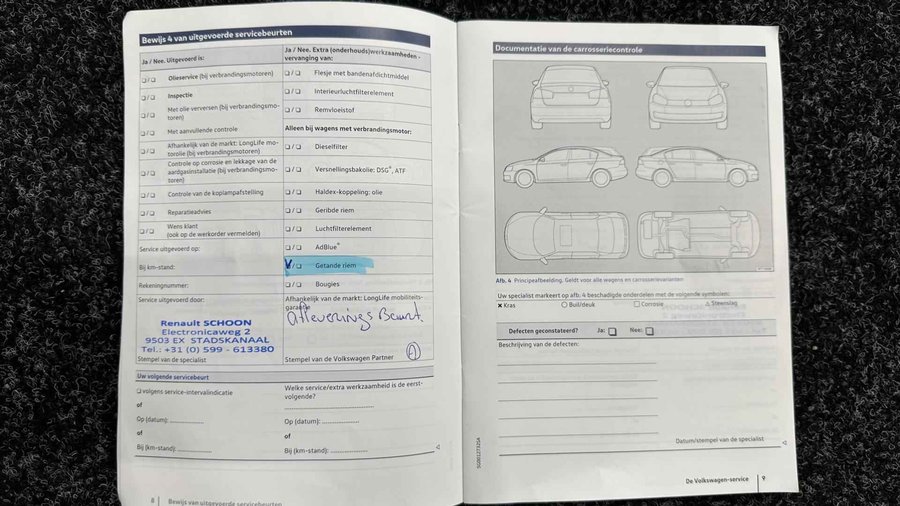 Bewijs 4 van uitgevoerde servicebeurten
Ja / Nee. Uitgevoerd is:
Olieservice (bij verbrandingsmotoren)
Inspectie
Met olie verversen (bij verbrandingsmo-
toren)
Met aanvullende controle
Afhankelijk van de markt: LongLife mo-
torolie (bij verbrandingsmotoren)
Controle op corrosie en lekkage van de
aardgasinstallatie (bij verbrandingsmo-
toren)
Controle van de koplampafstelling
Reparatieadvies
Wens klant
(ook op de werkorder vermelden)
Service uitgevoerd op:
Bij km-stand:
Rekeningnummer:
Service uitgevoerd door:
Renault SCHOON
Electronicaweg 2
9503 EX STADSKANAAL
Tel.: +31 (0) 599 - 613380
Stempel van de specialist
Ja / Nee. Extra (onderhouds)werkzaamheden -
vervanging van:
Flesje met bandenafdichtmiddel
Interieurluchtfilterelement
Remvloeistof
Alleen bij wagens met verbrandingsmotor:
Dieselfilter
Versnellingsbakolie: DSG®, ATF
Haldex-koppeling: olie
Geribde riem
Luchtfilterelement
AdBlue®
Getande riem
Bougies
Afhankelijk van de markt: LongLife mobiliteits-
garantie
Afleverings Beurt.
Stempel van de Volkswagen Partner
Uw volgende servicebeurt
volgens service-intervalindicatie
of
Op (datum):
of
Bij (km-stand):
Welke service/extra werkzaamheid is de eerst-
volgende?
Op (datum):
of
Bij (km-stand):
8 | Bewijs van uitgevoerde servicebeurten
Documentatie van de carrosseriecontrole
Afb. 4 Principeafbeelding. Geldt voor alle wagens en carrosserievarianten
Uw specialist markeert op afb. 4 beschadigde onderdelen met de volgende symbolen:
× Kras ○ Buil/deuk □ Corrosie △ Steenslag
Defecten geconstateerd? Ja: Nee:
Beschrijving van de defecten:
Datum/stempel van de specialist
De Volkswagen-service | 9